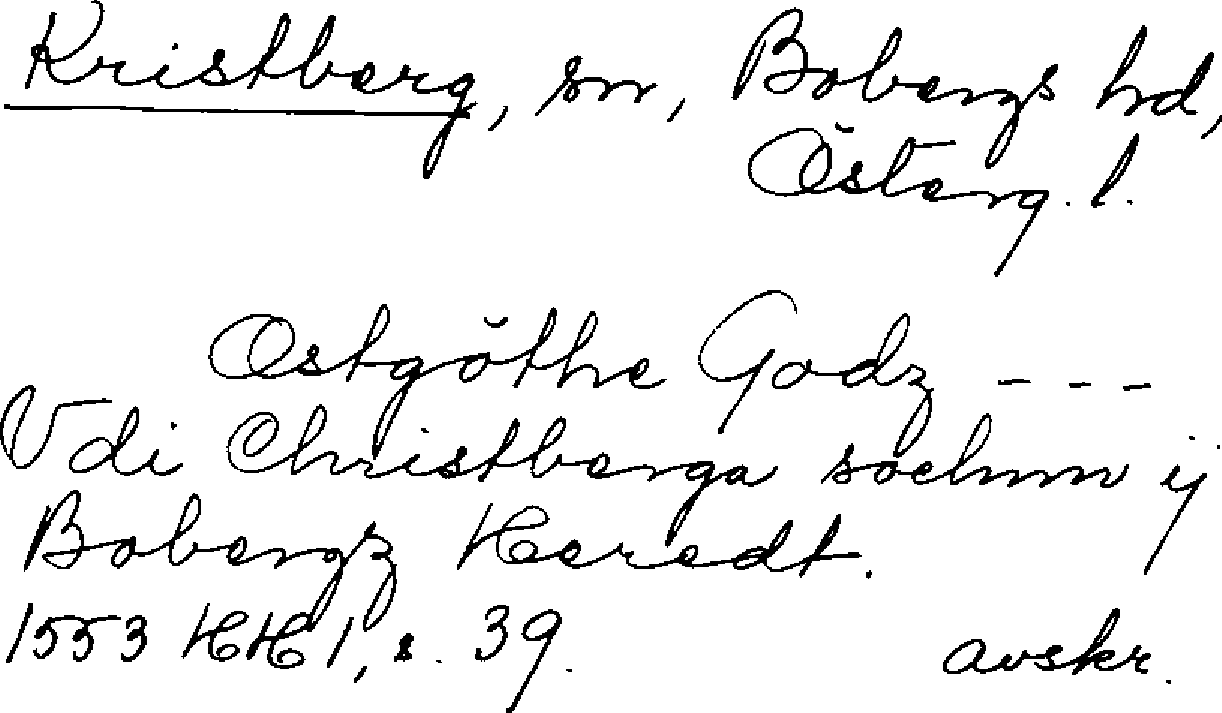 Kristberg, sn, Bobergs hd,
Österg. l.
Östgöthe Godz - - -
Vdi Christberga sochnn ij
Bobergz Heredt.
1553 HH 1, s. 39.
avskr.